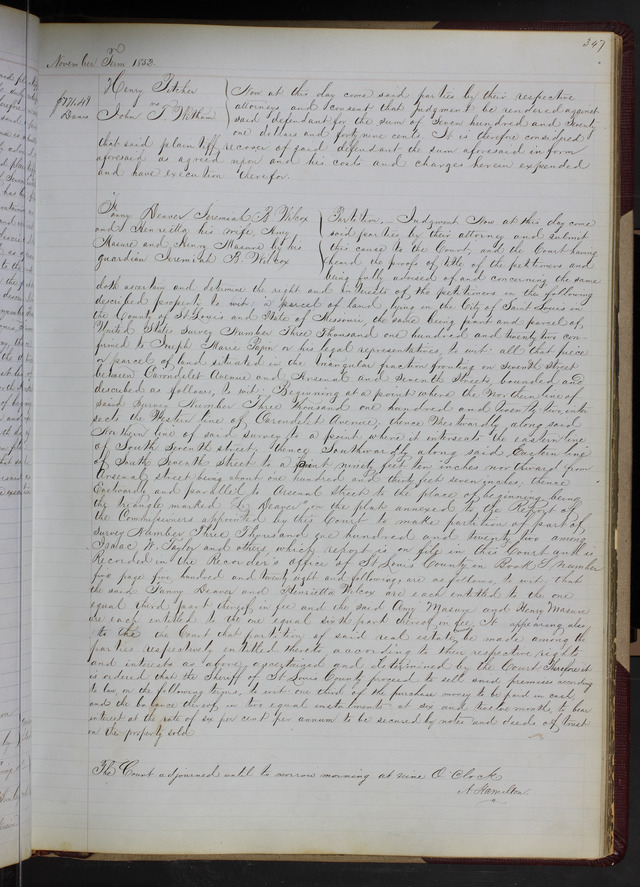 347
November Term 1852.
Henry Pitcher
vs
John T. Witham
$771.49
Now at this day come said parties by their respective
attorneys and consent that judgment be rendered against
said defendant for the sum of Seven hundred and Seventy
one dollars and forty nine cents, It is therefore considered
that said plaintiff recover of said defendant the sum aforesaid in form
aforesaid as agreed upon and his costs and charges herein expended
and have execution therefor.
Fanny Deaver Jeremiah B. Wilcox
and Henrietta his wife, Amy
Masure and Henry Masure by his
guardian Jeremiah B. Wilcox
Partition, Judgment Now at this day come
said parties by their attorney and submit
this cause to the Court, and the Court having
heard the proofs of title of the petitioners and
being fully advised of and concerning the same
doth ascertain and determine the right and interests of the petitioners in the following
described property to wit; a parcel of land lying in the City of Saint Louis in
the County of St Louis and State of Missouri the same being part and parcel of,
United States Survey Number Three Thousand one hundred and twenty two con-
firmed to Joseph Marie Papin or his legal representatives, to wit: all that piece
or parcel of land situated in the triangular fraction fronting on Seventh Street
between Carondelet Avenue and Arsenal and Seventh Streets, bounded and
described as follows, to wit: Beginning at a point where the Northern line of
said Survey Number Three Thousand one hundred and twenty two inter
sects the Western line of Carondelet Avenue, thence Westwardly along said
Northern line of said survey to a point where it intersects the eastern line
of South Seventh street, thence Southwardly along said Eastern line
of South Seventh Street to a point ninety feet ten inches northward from
Arsenal street being about one hundred and thirty feet seven inches, thence
Eastwardly and parallel to Arsenal Street to the place of beginning being
the triangle marked "L Deaver" on the plat annexed to the Report of
the Commissioners appointed by this Court to make partition of part of,
Survey Number Three Thousand one hundred and twenty two among
Isaac W. Taylor and others, which report is on file in this Court and is
Recorded in the Recorder's office of St Louis County in Book T Number
five page five hundred and twenty eight and following, are as follows, to wit, that
the said Fanny Deaver and Henrietta Wilcox are each entitled to the one
equal third part thereof, in fee and the said Amy Masure and Henry Masure
are each entitled to the one equal sixth part thereof in fee, It appearing also
to the the Court that partition of said real estate, be made among the
parties respectively entitled thereto according to their respective rights
and interests as above, ascertained and determined by the Court Therefore it
is ordered that the Sheriff of St Louis County proceed to sell said premises according
to law, on the following terms, to wit one third of the purchase money to be paid in cash,
and the balance thereof, in two equal instalments at six and twelve months, to bear
interest at the rate of six per cent per annum to be secured by notes and deeds of trust
on the property sold
The Court adjourned until to morrow morning at nine O'Clock
A Hamilton